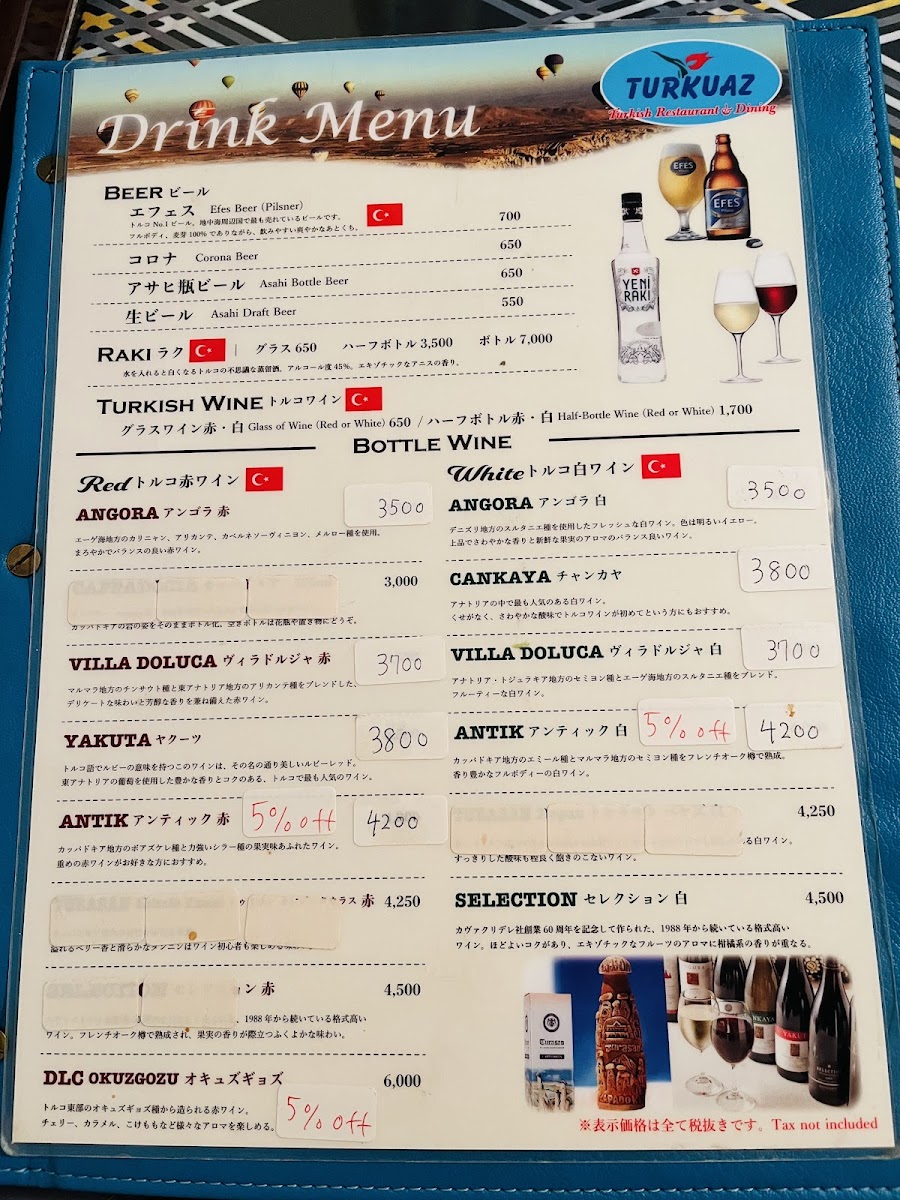 TURKUAZ
Turkish Restaurant & Dining
Drink Menu
BEER ビール
エフェス Efes Beer (Pilsner) 700
トルコ No.1 ビール。地中海周辺国で最も売れているビールです。
フルボディ、麦芽 100% でありながら、飲みやすい爽やかなあとくち。
コロナ Corona Beer 650
アサヒ瓶ビール Asahi Bottle Beer 650
生ビール Asahi Draft Beer 550
EFES
EFES
YENI
RAKI
RAKI ラク | グラス 650 ハーフボトル 3,500 ボトル 7,000
水を入れると白くなるトルコの不思議な蒸留酒。アルコール度 45%。エキゾチックなアニスの香り。
TURKISH WINE トルコワイン
グラスワイン赤・白 Glass of Wine (Red or White) 650 / ハーフボトル赤・白 Half-Bottle Wine (Red or White) 1,700
BOTTLE WINE
Red トルコ赤ワイン
ANGORA アンゴラ 赤 3500
エーゲ海地方のカリニャン、アリカンテ、カベルネソーヴィニヨン、メルロー種を使用。
まろやかでバランスの良い赤ワイン。
3,000
カッパドキアの岩の姿をそのままボトル化。空きボトルは花瓶や置き物にどうぞ。
VILLA DOLUCA ヴィラドルジャ 赤 3700
マルマラ地方のチンサウト種と東アナトリア地方のアリカンテ種をブレンドした、
デリケートな味わいと芳醇な香りを兼ね備えた赤ワイン。
YAKUTA ヤクーツ 3800
トルコ語でルビーの意味を持つこのワインは、その名の通り美しいルビーレッド。
東アナトリアの葡萄を使用した豊かな香りとコクのある、トルコで最も人気のワイン。
ANTIK アンティック 赤 5% off 4200
カッパドキア地方のボアズケレ種と力強いシラー種の果実味あふれたワイン。
重めの赤ワインがお好きな方におすすめ。
ラス 赤 4,250
溢れるベリー香と滑らかなタンニンはワイン初心者も楽しめる
ン 赤 4,500
、1988 年から続いている格式高い
ワイン。フレンチオーク樽で熟成され、果実の香りが際立つふくよかな味わい。
DLC OKUZGOZU オキュズギョズ 6,000
トルコ東部のオキュズギョズ種から造られる赤ワイン。
チェリー、カラメル、こけももなど様々なアロマを楽しめる。
5% off
White トルコ白ワイン
ANGORA アンゴラ 白 3500
デニズリ地方のスルタニエ種を使用したフレッシュな白ワイン。色は明るいイエロー。
上品でさわやかな香りと新鮮な果実のアロマのバランス良いワイン。
CANKAYA チャンカヤ 3800
アナトリアの中で最も人気のある白ワイン。
くせがなく、さわやかな酸味でトルコワインが初めてという方にもおすすめ。
VILLA DOLUCA ヴィラドルジャ 白 3700
アナトリア・トジュラキア地方のセミヨン種とエーゲ海地方のスルタニエ種をブレンド。
フルーティーな白ワイン。
ANTIK アンティック 白 5% off 4200
カッパドキア地方のエミール種とマルマラ地方のセミヨン種をフレンチオーク樽で熟成。
香り豊かなフルボディーの白ワイン。
4,250
ある白ワイン。
すっきりした酸味も程良く飽きのこないワイン。
SELECTION セレクション 白 4,500
カヴァクリデレ社創業 60 周年を記念して作られた、1988 年から続いている格式高い
ワイン。ほどよいコクがあり、エキゾチックなフルーツのアロマに柑橘系の香りが重なる。
Turasan
※表示価格は全て税抜きです。Tax not included